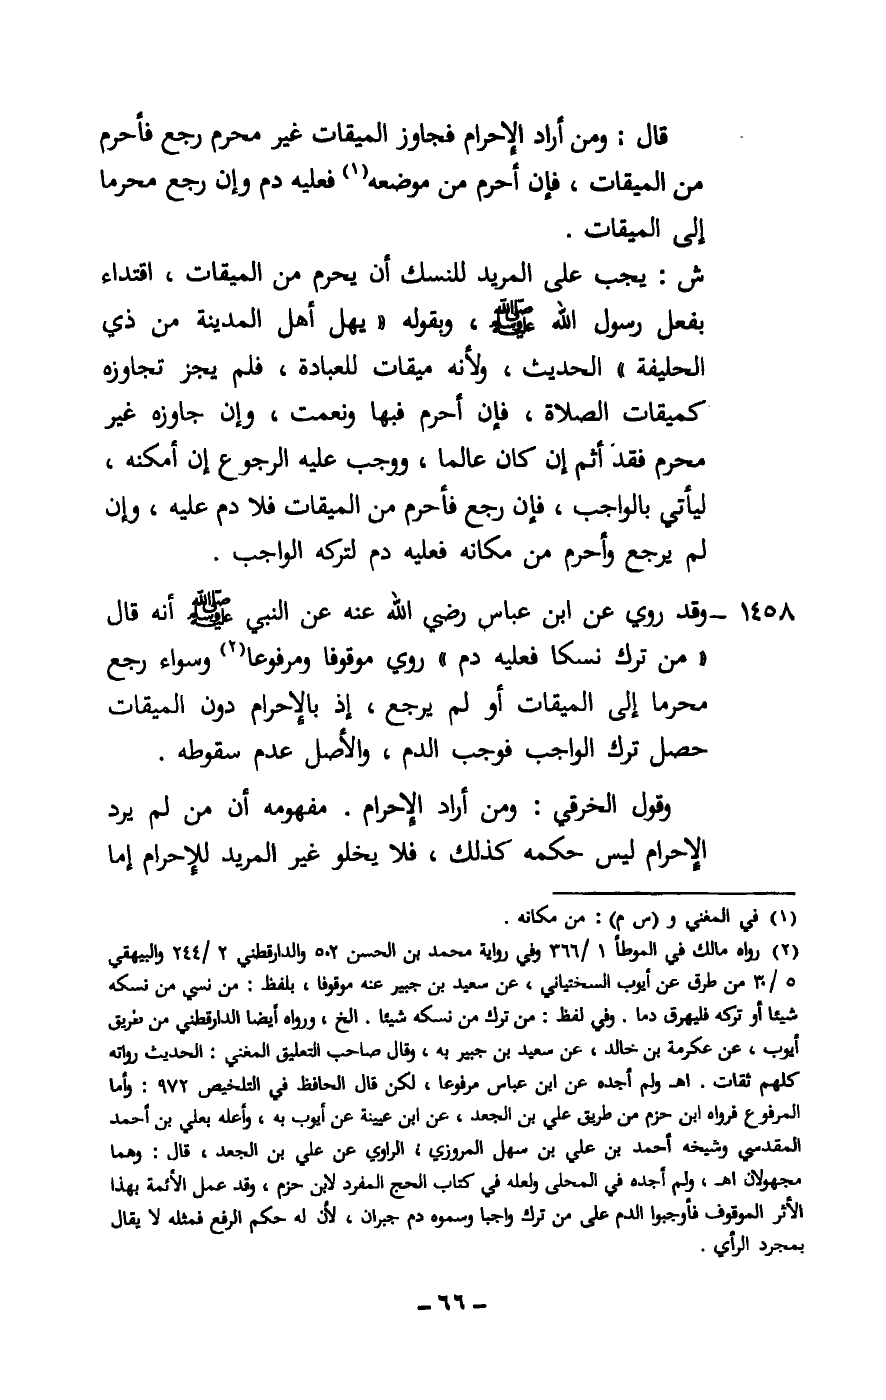 قال : ومن أراد الإحرام فجاوز الميقات غير محرم رجع فأحرم
من الميقات ، فإن أحرم من موضعه(١) فعليه دم وإن رجع محرما
إلى الميقات .
ش : يجب على المريد للنسك أن يحرم من الميقات ، اقتداء
بفعل رسول الله ﷺ ، وبقوله « يهل أهل المدينة من ذي
الحليفة » الحديث ، ولأنه ميقات للعبادة ، فلم يجز تجاوزه
كميقات الصلاة ، فإن أحرم فبها ونعمت ، وإن جاوزه غير
محرم فقد أثم إن كان عالما ، ووجب عليه الرجوع إن أمكنه ،
ليأتي بالواجب ، فإن رجع فأحرم من الميقات فلا دم عليه ، وإن
لم يرجع وأحرم من مكانه فعليه دم لتركه الواجب .
١٤٥٨ ــ وقد روي عن ابن عباس رضي الله عنه عن النبي ﷺ أنه قال
« من ترك نسكا فعليه دم » روي موقوفا ومرفوعا(٢) وسواء رجع
محرما إلى الميقات أو لم يرجع ، إذ بالإحرام دون الميقات
حصل ترك الواجب فوجب الدم ، والأصل عدم سقوطه .
وقول الخرقي : ومن أراد الإحرام . مفهومه أن من لم يرد
الإحرام ليس حكمه كذلك ، فلا يخلو غير المريد للإحرام إما
(١) في المغني و (س م) : من مكانه .
(٢) رواه مالك في الموطأ ١ /٣٦٦ وفي رواية محمد بن الحسن ٥٠٢ والدارقطني ٢ /٢٤٤ والبيهقي
٥ /٣٠ من طرق عن أيوب السختياني ، عن سعيد بن جبير عنه موقوفا ، بلفظ : من نسي من نسكه
شيئا أو تركه فليهرق دما . وفي لفظ : من ترك من نسكه شيئا . الخ ، ورواه أيضا الدارقطني من طريق
أيوب ، عن عكرمة بن خالد ، عن سعيد بن جبير به ، وقال صاحب التعليق المغني : الحديث رواته
كلهم ثقات . اهـ ولم أجده عن ابن عباس مرفوعا ، لكن قال الحافظ في التلخيص ٩٧٢ : وأما
المرفوع فرواه ابن حزم من طريق علي بن الجعد ، عن ابن عيينة عن أيوب به ، وأعله بعلي بن أحمد
المقدسي وشيخه أحمد بن علي بن سهل المروزي ؛ الراوي عن علي بن الجعد ، قال : وهما
مجهولان اهـ ، ولم أجده في المحلى ولعله في كتاب الحج المفرد لابن حزم ، وقد عمل الأئمة بهذا
الأثر الموقوف فأوجبوا الدم على من ترك واجبا وسموه دم جبران ، لأن له حكم الرفع فمثله لا يقال
بمجرد الرأي .
ــ ٦٦ ــ